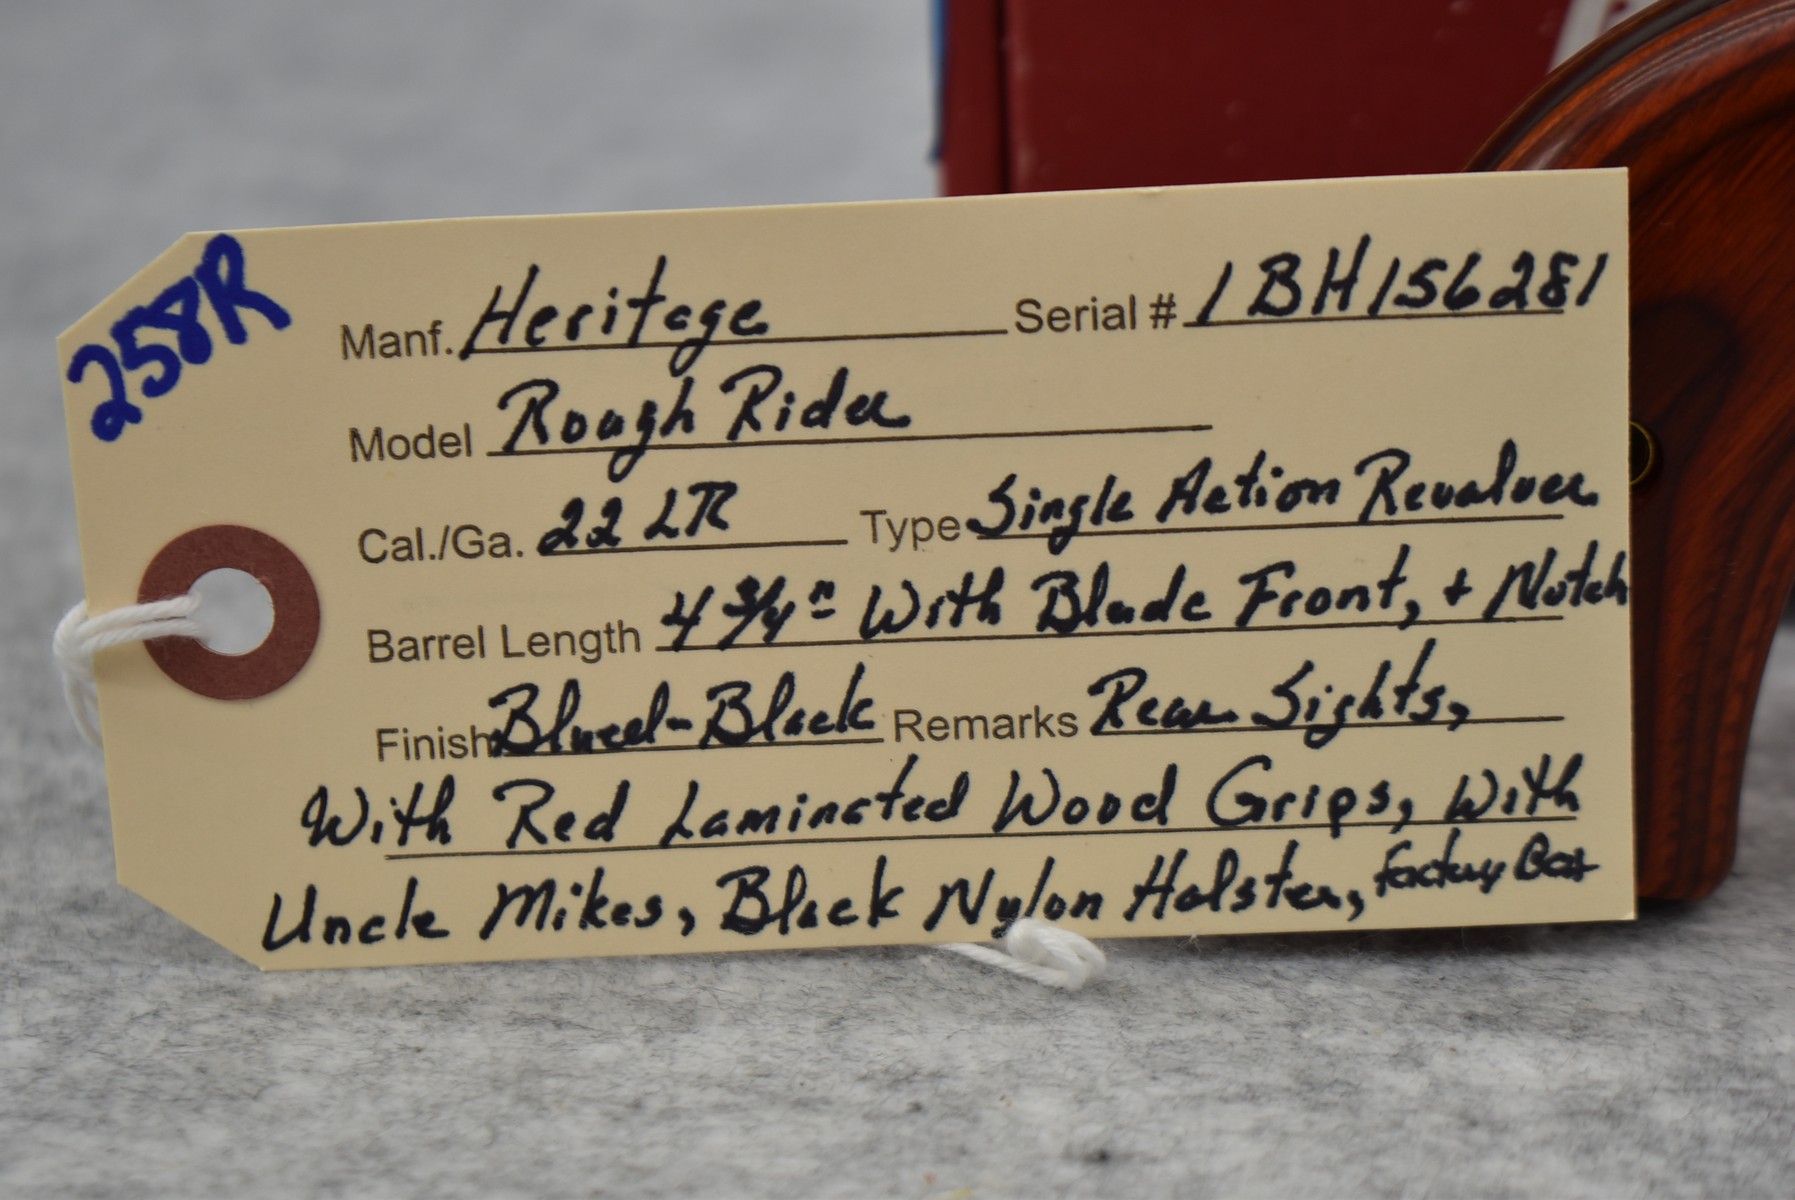 258R
Manf. Heritage Serial # 1BH156281
Model Rough Rider
Cal./Ga. 22 LR Type Single Action Revolver
Barrel Length 4 3/4" With Blade Front, + Notch
Finish Blued-Black Remarks Rear Sights,
With Red Laminated Wood Grips, With
Uncle Mikes, Black Nylon Holster, Factory Box